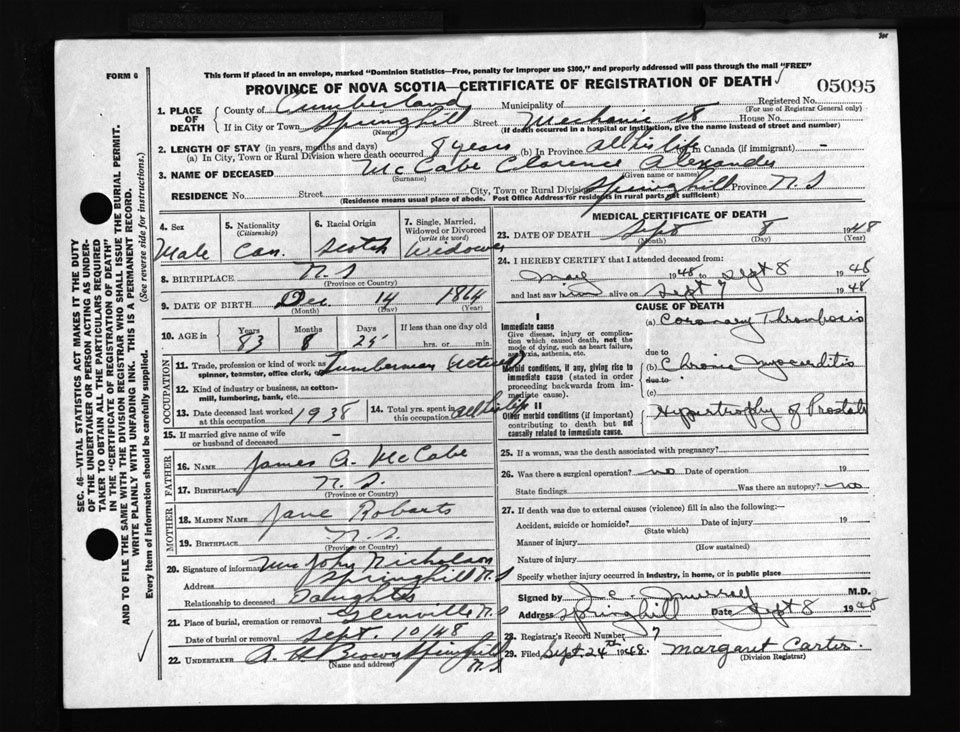 FORM 6
This form if placed in an envelope, marked "Dominion Statistics—Free, penalty for improper use $300," and properly addressed will pass through the mail "FREE"
PROVINCE OF NOVA SCOTIA—CERTIFICATE OF REGISTRATION OF DEATH
05095
1. PLACE OF DEATH
County of Cumberland Municipality of Registered No.
(For use of Registrar General only)
If in City or Town Springhill Street Mechanic St House No.
(Name) (If death occurred in a hospital or institution, give the name instead of street and number)
2. LENGTH OF STAY (in years, months and days)
(a) In City, Town or Rural Division where death occurred 8 years (b) In Province all his life (c) In Canada (if immigrant) —
3. NAME OF DECEASED McCabe Clarence Alexander
(Surname) (Given name or names)
RESIDENCE No. Street City, Town or Rural Division Springhill Province N.S
(Residence means usual place of abode. Post Office Address for residents in rural parts not sufficient)
4. Sex Male
5. Nationality (Citizenship) Can.
6. Racial Origin Scotch
7. Single, Married, Widowed or Divorced (write the word) Widower
8. BIRTHPLACE N.S
(Province or Country)
9. DATE OF BIRTH Dec 14 1864
(Month) (Day) (Year)
10. AGE in Years Months Days If less than one day old
83 8 25 hrs. or min.
OCCUPATION
11. Trade, profession or kind of work as spinner, teamster, office clerk, etc. Lumberman Retired
12. Kind of industry or business, as cotton-mill, lumbering, bank, etc.
13. Date deceased last worked at this occupation 1938
14. Total yrs. spent in this occupation all his life
15. If married give name of wife or husband of deceased —
FATHER
16. NAME James A. McCabe
17. BIRTHPLACE N.S.
(Province or Country)
MOTHER
18. MAIDEN NAME Jane Roberts
19. BIRTHPLACE N.S.
(Province or Country)
20. Signature of informant Mrs John Nicholson
Address Springhill N.S
Relationship to deceased Daughter
21. Place of burial, cremation or removal Glenville N.S
Date of burial or removal Sept. 10/48
22. UNDERTAKER A. H. Brown Springhill N.S
(Name and address)
MEDICAL CERTIFICATE OF DEATH
23. DATE OF DEATH Sept 8 1948
(Month) (Day) (Year)
24. I HEREBY CERTIFY that I attended deceased from:
May 1948 to Sept 8 1948
and last saw him alive on Sept 7 1948
CAUSE OF DEATH
I
Immediate cause
Give disease, injury or complication which caused death, not the mode of dying, such as heart failure, asphyxia, asthenia, etc.
(a) Coronary Thrombosis
due to
Morbid conditions, if any, giving rise to immediate cause (stated in order proceeding backwards from immediate cause)
(b) Chronic myocarditis
due to
(c)
II
Other morbid conditions (if important) contributing to death but not causally related to immediate cause.
Hypertrophy of Prostate
25. If a woman, was the death associated with pregnancy?
26. Was there a surgical operation? no Date of operation 19
State findings Was there an autopsy? no
27. If death was due to external causes (violence) fill in also the following:—
Accident, suicide or homicide? Date of injury 19
(State which)
Manner of injury
(How sustained)
Nature of injury
Specify whether injury occurred in industry, in home, or in public place
Signed by J. C. Murray M.D.
Address Springhill Date Sept 8 1948
28. Registrar's Record Number 7
29. Filed Sept. 24th 1948. Margaret Carter.
(Division Registrar)
SEC. 46—VITAL STATISTICS ACT MAKES IT THE DUTY
OF THE UNDERTAKER OR PERSON ACTING AS UNDER-
TAKER TO OBTAIN ALL THE PARTICULARS REQUIRED
IN THE "CERTIFICATE OF REGISTRATION OF DEATH"
AND TO FILE THE SAME WITH THE DIVISION REGISTRAR WHO SHALL ISSUE THE BURIAL PERMIT.
WRITE PLAINLY WITH UNFADING INK. THIS IS A PERMANENT RECORD.
Every item of information should be carefully supplied. (See reverse side for instructions.)